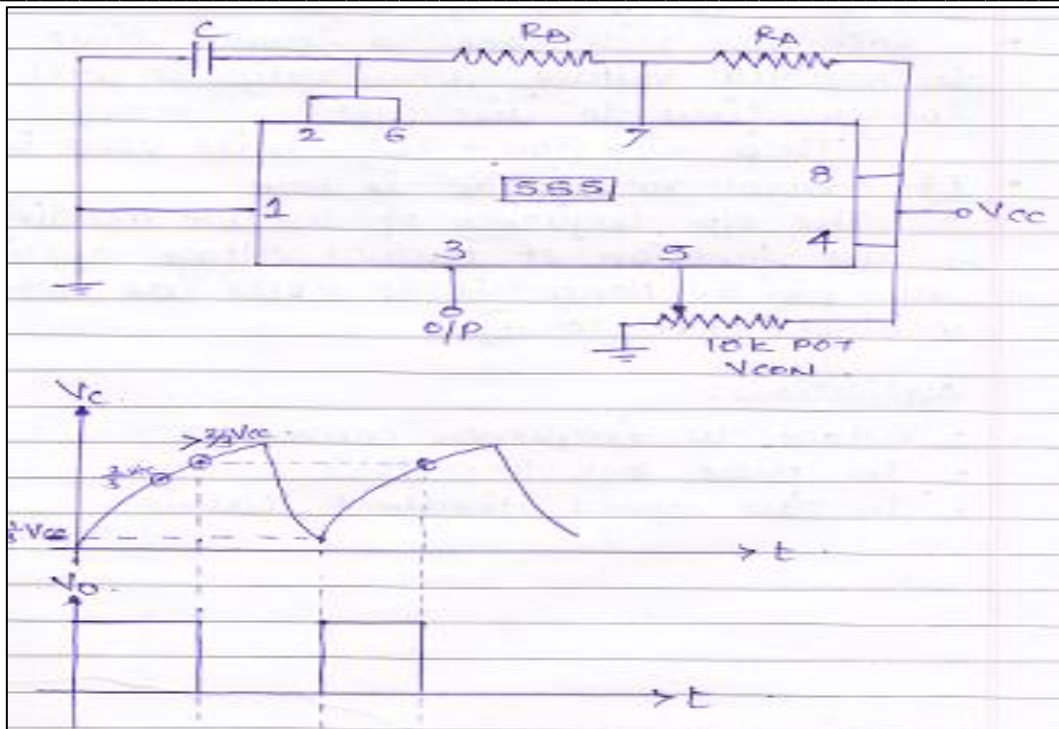 C RB RA
2 6 7
8
555
1
VCC
4
3 5
O/P
10K POT
VCON
VC
>2/3VCC
2/3 VCC
VCC
t
VO
t